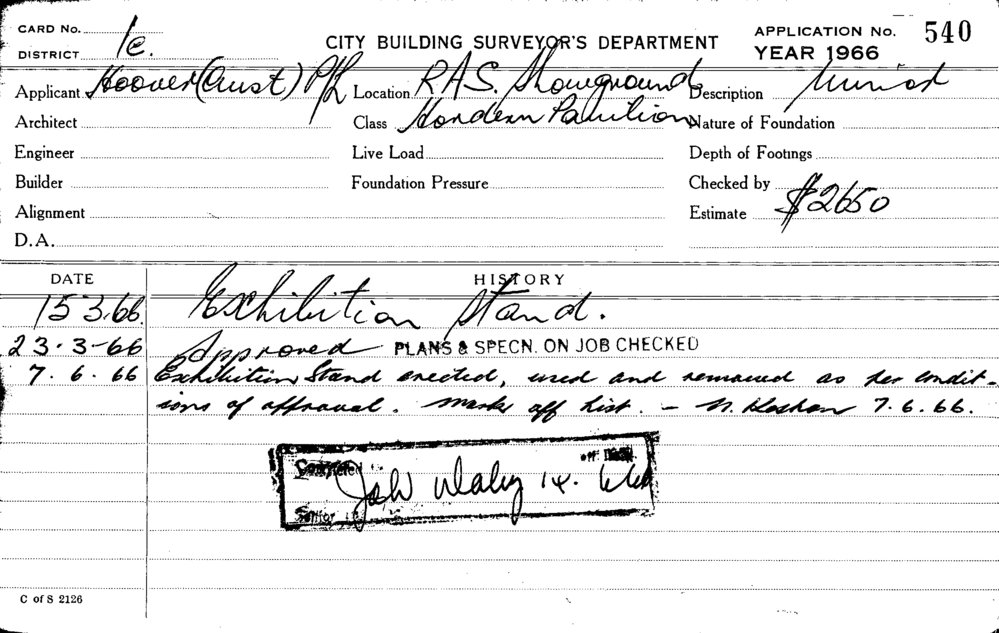 CARD No.
DISTRICT 1e.
CITY BUILDING SURVEYOR'S DEPARTMENT
APPLICATION No. 540
YEAR 1966
Applicant Hoover (Aust) P/L Location R.A.S. Showground Description
Architect Class Hordern Pavilion Nature of Foundation
Engineer Live Load Depth of Footings
Builder Foundation Pressure Checked by
Alignment Estimate $2650
D.A.
DATE HISTORY
15 3.66. Exhibition Stand.
23.3-66 Approved PLANS & SPECN. ON JOB CHECKED
7.6.66 Exhibition Stand erected, used and removed as per condit-
ions of approval. Marks off list. - 7.6.66.
Completed off
Senior
C of S 2126